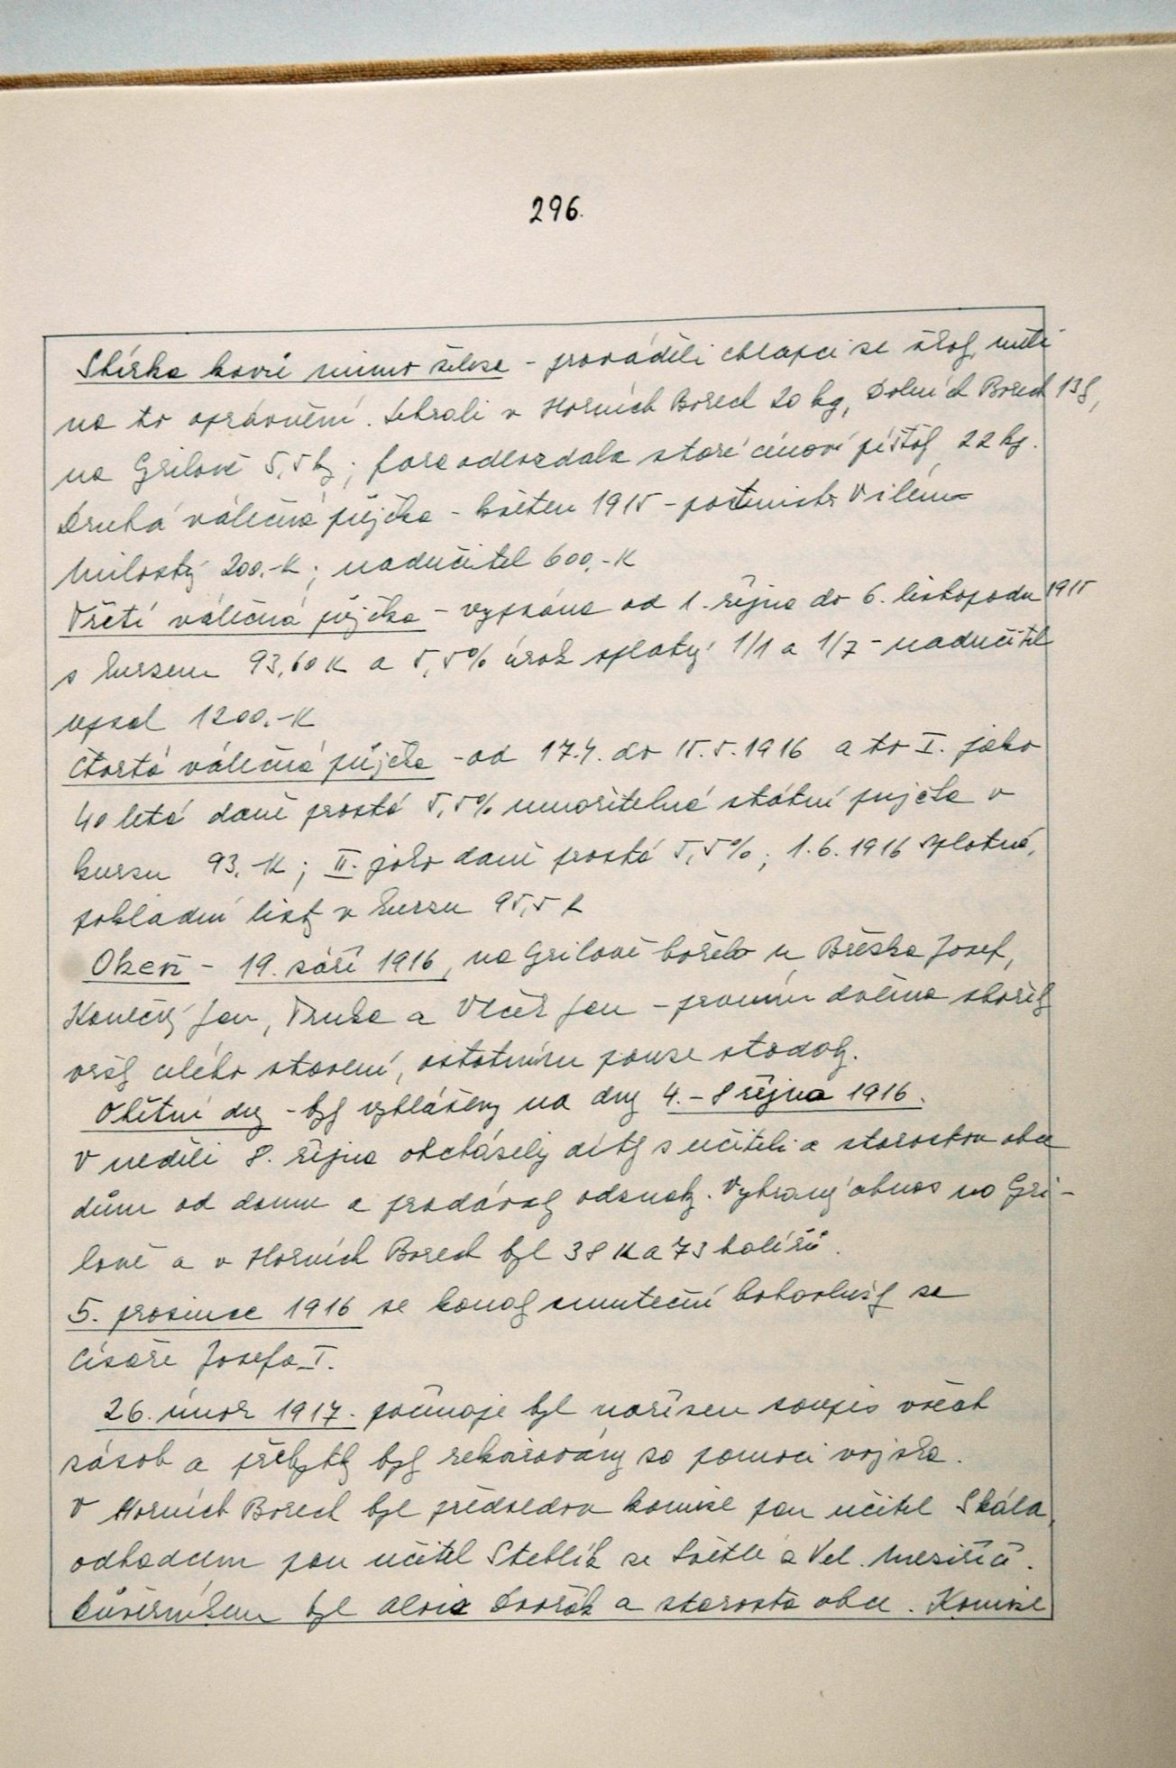 296.
Sbírka kovů mimo železa - prováděli chlapci ze školy, měli
na to oprávnění. Sebrali v Horních Borech 20 kg, Dolních Borech 138,
na Grilově 5,5 kg; fara odevzdala staré cínové píšťaly 22 kg.
Druhá válečná půjčka - květen 1915 - poštmistr Vilém
Milostný 200.-K; nadučitel 600.-K
Třetí válečná půjčka - vypsána od 1. října do 6. listopadu 1915
s kursem 93,60 K a 5,5% úrok splatný 1/1 a 1/7 - nadučitel
upsal 1200.-K
Čtvrtá válečná půjčka - od 17.4. do 15.5.1916 a to I. jako
40 letá daně prostá 5,5% umořitelná státní pujčka v
kursu 93.-K; II. jako daně prostá 5,5%; 1.6.1916 splatné,
pokladní listy v kursu 95,5 K
Oheň - 19. září 1916, na Grilově hořelo u Bližka Josef,
Konečný Jan, Truba a Vlček Jan - prvním dvěma shořely
vršky celého stavení, ostatním pouze stodoly.
Obětní dny - byly vyhlášeny na dny 4. - 8 října 1916.
V neděli 8. října obcházely dítky s učiteli a starostou obce
dům od domu a prodávaly odznaky. Vybraný obnos na Gri-
lově a v Horních Borech byl 38 K a 73 haléřů.
5. prosince 1916 se konaly smuteční bohoslužby za
císaře Josefa I.
26. únor 1917. počínaje byl nařízen soupis všech
zásob a přebytky byly rekvírovány za pomoci vojska.
V Horních Borech byl předsedou komise pan učitel Skála,
odhadcem pan učitel Steblík ze Světlé a Vel. Meziříčí.
Důvěrníkem byl Alois Dvořák a starosta obce. Komise